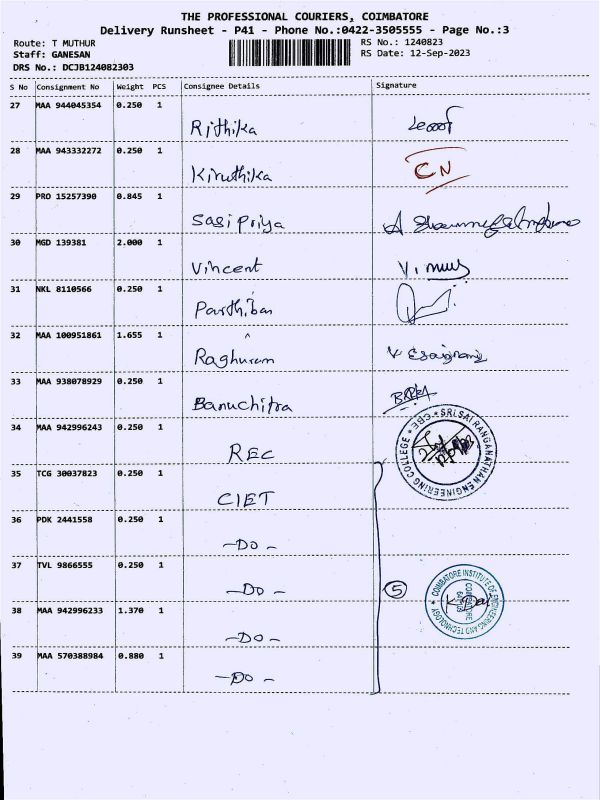 THE PROFESSIONAL COURIERS, COIMBATORE
Delivery Runsheet - P41 - Phone No.:0422-3505555 - Page No.:3
Route: T MUTHUR RS No.: 1240823
Staff: GANESAN RS Date: 12-Sep-2023
DRS No.: DCJB124082303
S No Consignment No Weight PCS Consignee Details Signature
27 MAA 944045354 0.250 1
Rithika
28 MAA 943332272 0.250 1
Kiruthika CN
29 PRO 15257390 0.845 1
Sasi Priya
30 MGD 139381 2.000 1
Vincent
31 NKL 8110566 0.250 1
Parthiban
32 MAA 100951861 1.655 1
Raghuram
33 MAA 938078929 0.250 1
Banuchitra
34 MAA 942996243 0.250 1
REC
SRI SAI RANGANATHAN ENGINEERING COLLEGE * CBE *
35 TCG 30037823 0.250 1
CIET
36 PDK 2441558 0.250 1
-Do-
37 TVL 9866555 0.250 1
-Do- 5
COIMBATORE INSTITUTE OF ENGINEERING AND TECHNOLOGY
38 MAA 942996233 1.370 1
-Do-
39 MAA 570388984 0.880 1
-Do-